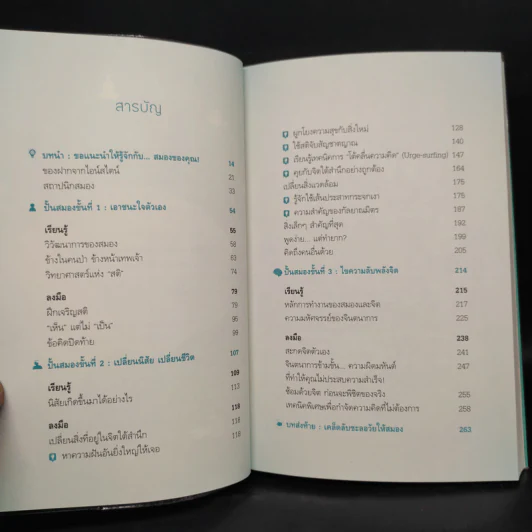 สารบัญ
บทนำ : ขอแนะนำให้รู้จักกับ... สมองของคุณ! 14
ของฝากจากไอน์สไตน์ 21
สถาปนิกสมอง 33
ปั้นสมองขั้นที่ 1 : เอาชนะใจตัวเอง 54
เรียนรู้ 55
วิวัฒนาการของสมอง 58
ช้างในคนป่า ช้างหน้าเทพเจ้า 63
วิทยาศาสตร์แห่ง "สติ" 74
ลงมือ 79
ฝึกเจริญสติ 79
"เห็น" แต่ไม่ "เป็น" 95
ข้อคิดปิดท้าย 99
ปั้นสมองขั้นที่ 2 : เปลี่ยนนิสัย เปลี่ยนชีวิต 107
เรียนรู้ 109
นิสัยเกิดขึ้นมาได้อย่างไร 113
ลงมือ 118
เปลี่ยนสิ่งที่อยู่ในจิตใต้สำนึก 118
หาความฝันอันยิ่งใหญ่ให้เจอ 118
ผูกโยงความสุขกับสิ่งใหม่ 128
ใช้สติจับสัญชาตญาณ 140
เรียนรู้เทคนิคการ "โต้คลื่นความคิด" (Urge-surfing) 147
คุยกับจิตใต้สำนึกอย่างถูกต้อง 164
เปลี่ยนสิ่งแวดล้อม 175
รู้จักใช้เส้นประสาทกระจกเงา 175
ความสำคัญของกัลยาณมิตร 187
สิ่งเล็กๆ สำคัญที่สุด 192
พูดง่าย... แต่ทำยาก? 199
คิดถึงคนอื่นด้วย 205
ปั้นสมองขั้นที่ 3 : ไขความลับพลังจิต 214
เรียนรู้ 215
หลักการทำงานของสมองและจิต 217
ความมหัศจรรย์ของจินตนาการ 231
ลงมือ 238
สะกดจิตตัวเอง 241
จินตนาการข้ามขั้น... ความผิดมหันต์ 247
ที่ทำให้คุณไม่ประสบความสำเร็จ!
ซ้อมด้วยจิต ก่อนจะพิชิตของจริง 255
เทคนิคพิเศษเพื่อกำจัดความคิดที่ไม่ต้องการ 258
บทส่งท้าย : เคล็ดลับชะลอวัยให้สมอง 263